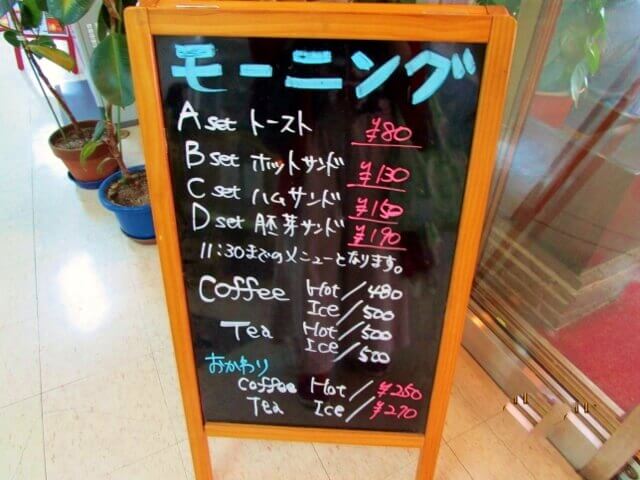 モーニング
A set トースト ¥80
B set ホットサンド ¥130
C set ハムサンド ¥150
D set 胚芽サンド ¥190
11:30までのメニューとなります。
Coffee Hot/480
Ice/500
Tea Hot/500
Ice/500
おかわり
Coffee Hot/¥250
Tea Ice/¥270